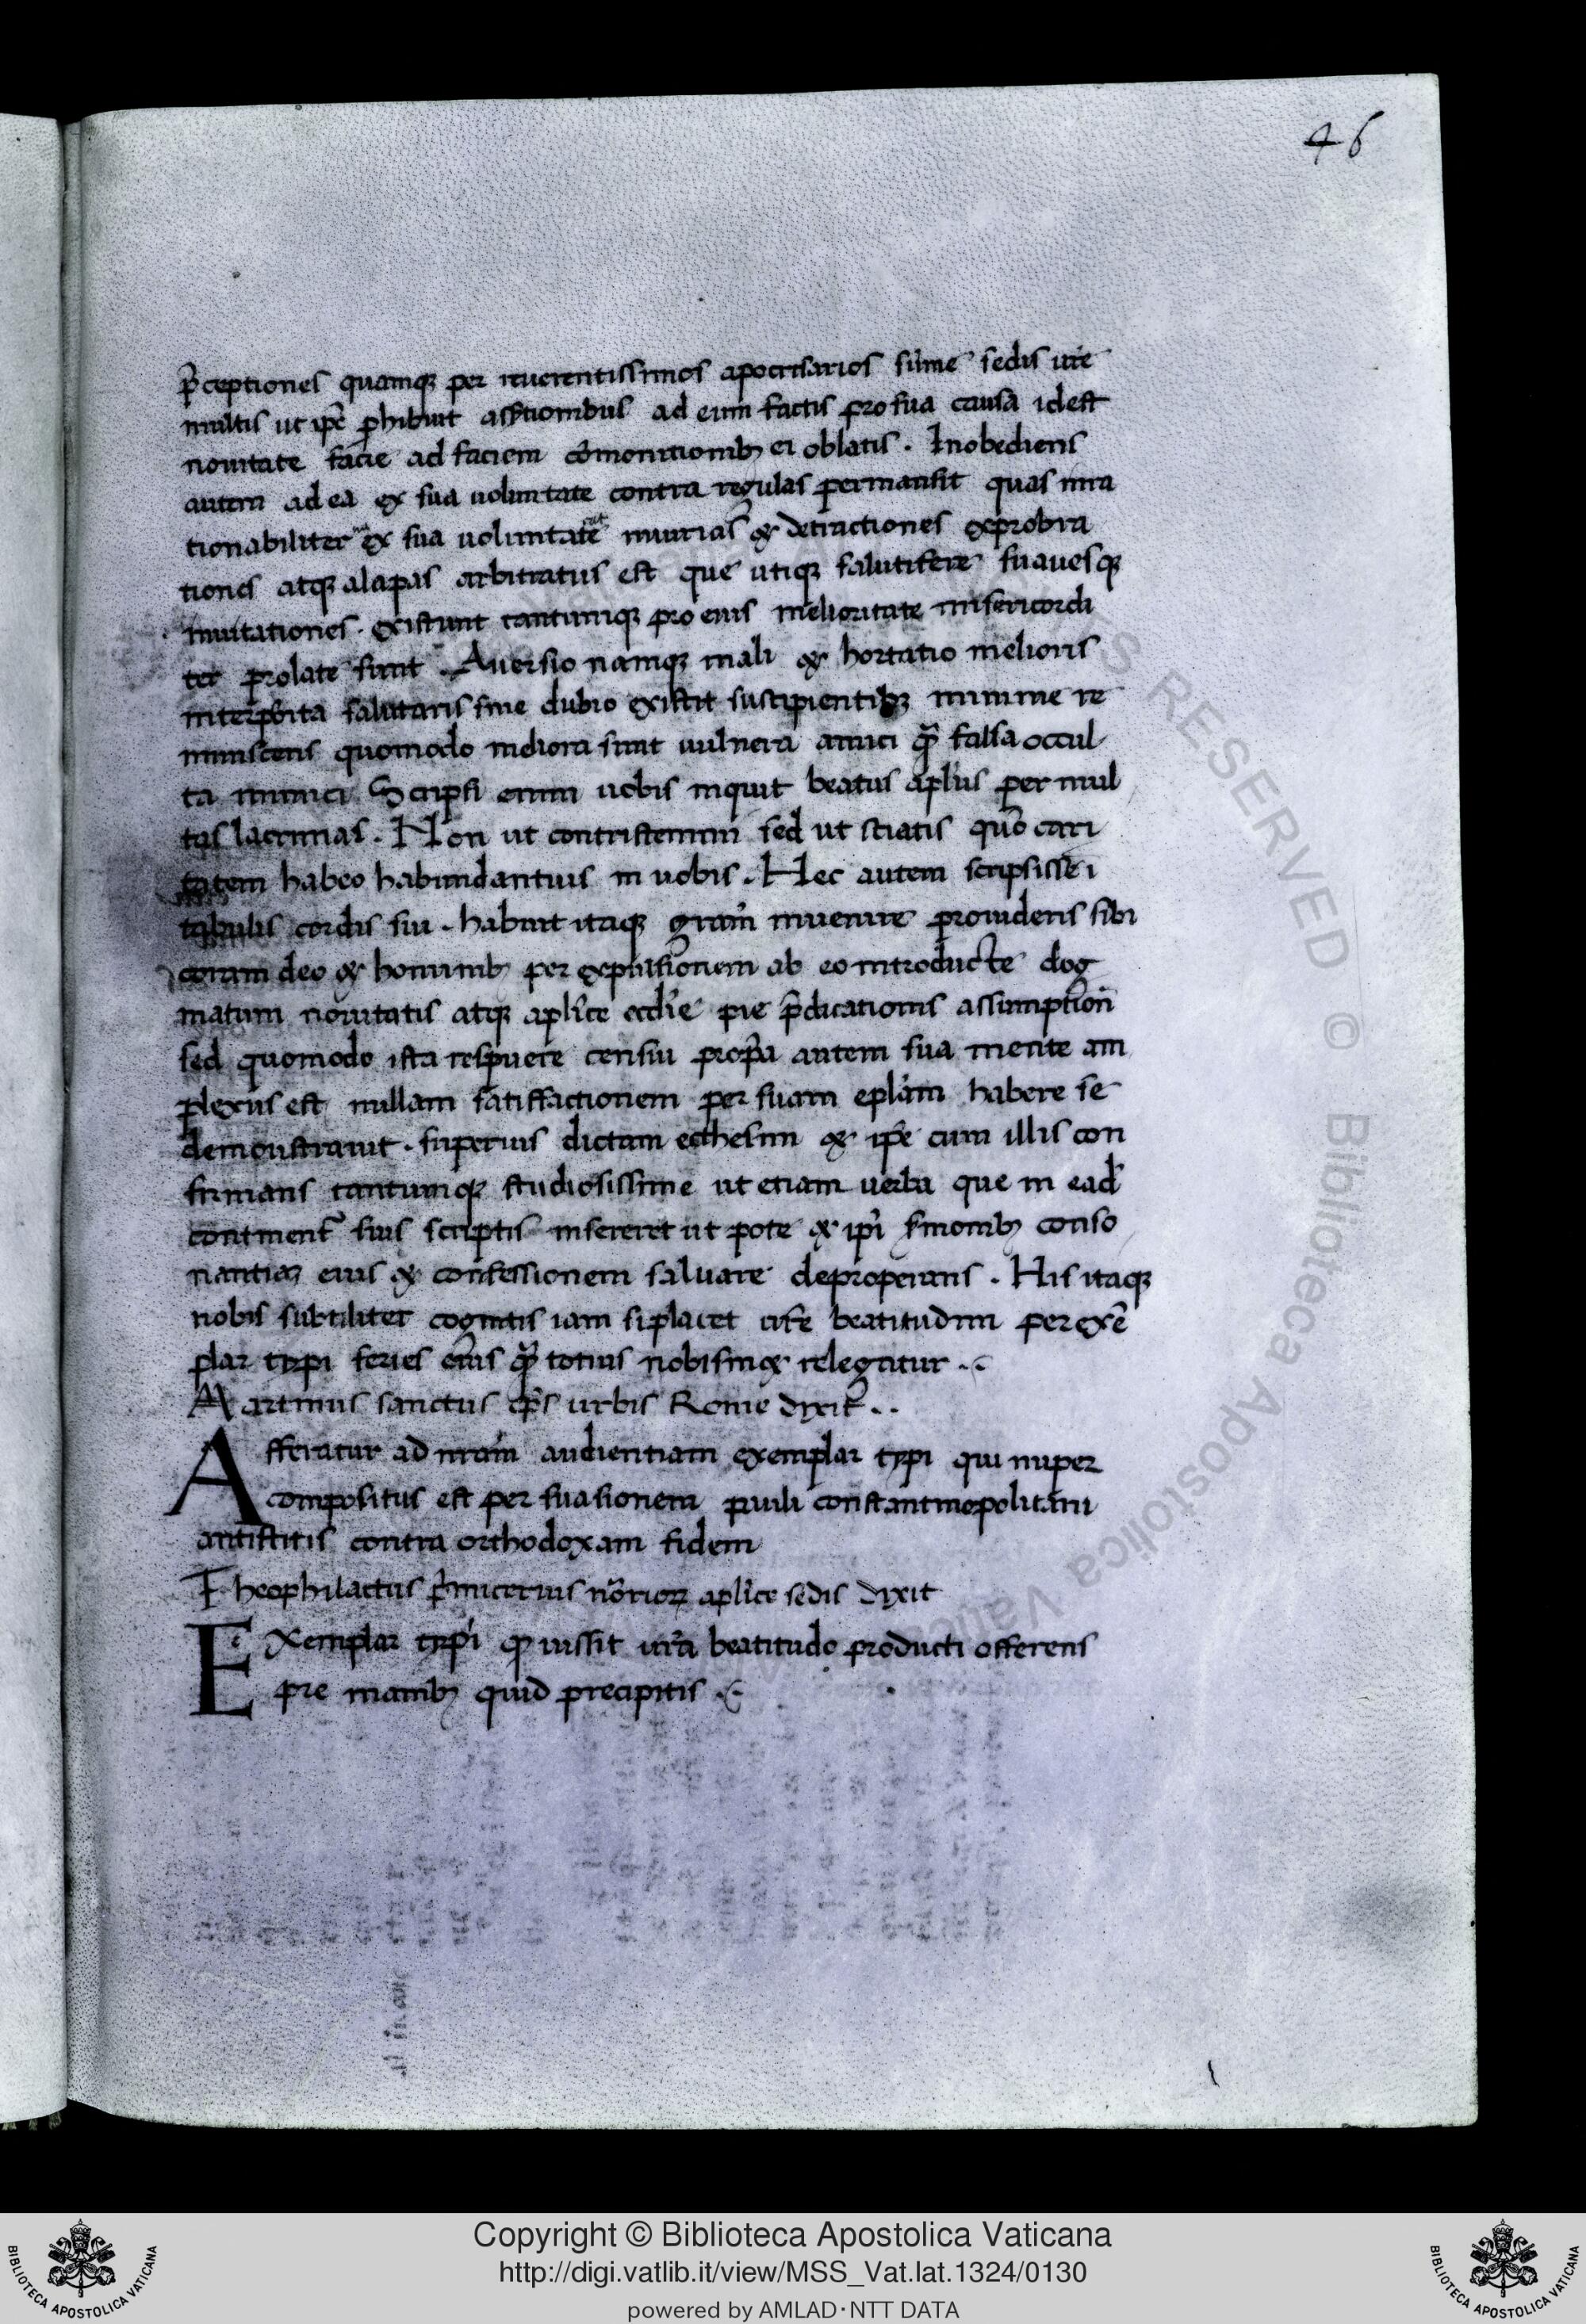 46
p̄ceptiones quamqꝫ per reuerentissimos apocrisarios sūme sedis ur̄e
multis ut ip̄e p̄hibuit assertionibus ad eum factis pro sua causa idest
nouitate facie ad faciem cōmonitionibꝫ ei oblatis. Inobediens
autem ad ea ex sua uoluntate contra regulas permansit quas inra
tionabiliter ex sua uoluntate iniurias & detractiones exprobra
tiones atqꝫ alapas arbitratus est que utiqꝫ salutifere suauesqꝫ
inuitationes. existunt tantumqꝫ pro eius melioritate misericordi
ter prolate sunt. Auersio namqꝫ mali & hortatio melioris
salutaris sine dubio existit suscipientibꝫ minime re
miniscens quomodo meliora sunt uulnera amici quā falsa occul
ta inimici Scripsi enim uobis inquit beatus apl̄us per mul
tas lacrimas. Non ut contristemini sed ut sciatis quō cari
tatem habeo habundantius in uobis. Hec autem scripsisse i
tabulis cordis sui. habuit itaqꝫ grām inuenire prouidens sibi
coram deo & hominibꝫ per expulsionem ab eo introducte dog
matum nouitatis atqꝫ apl̄ice eccl̄ie pie p̄dicationis assumption̄
sed quomodo ista respuere censiu prop̄a autem sua mente am
plexus est nullam satisfactionem per suam epl̄am habere se
demonstrauit. superius dictam ecthesim & ip̄e cum illis con
firmans tantumqꝫ studiosissime ut etiam uerba que in ead̄
continent̄ suis scriptis insereret ut pote & ip̄i s̄monibꝫ conso
nantiaꝫ eius & confessionem saluare deproperans. His itaqꝫ
nobis subtiliter cognitis iam si placet ur̄e beatitudini per exē
plar typi series eius quā totius nobismet relegatur..
Martinus sanctus ep̄s urbis Rome dixit..
Afferatur ad nr̄am audientiam exemplar typi qui nuper
compositus est per suasionem pauli constantinopolitani
antistitis contra orthodoxam fidem
Theophilactus p̄micerius nōtioꝝ apl̄ice sedis dixit
Exemplar typi qd iussit ur̄a beatitudo producti offerens
pre manibꝫ quid precipitis.
RIGHTS RESERVED © Biblioteca Apostolica Vaticana
BIBLIOTECA APOSTOLICA VATICANA
Copyright © Biblioteca Apostolica Vaticana
http://digi.vatlib.it/view/MSS_Vat.lat.1324/0130
powered by AMLAD·NTT DATA
BIBLIOTECA APOSTOLICA VATICANA